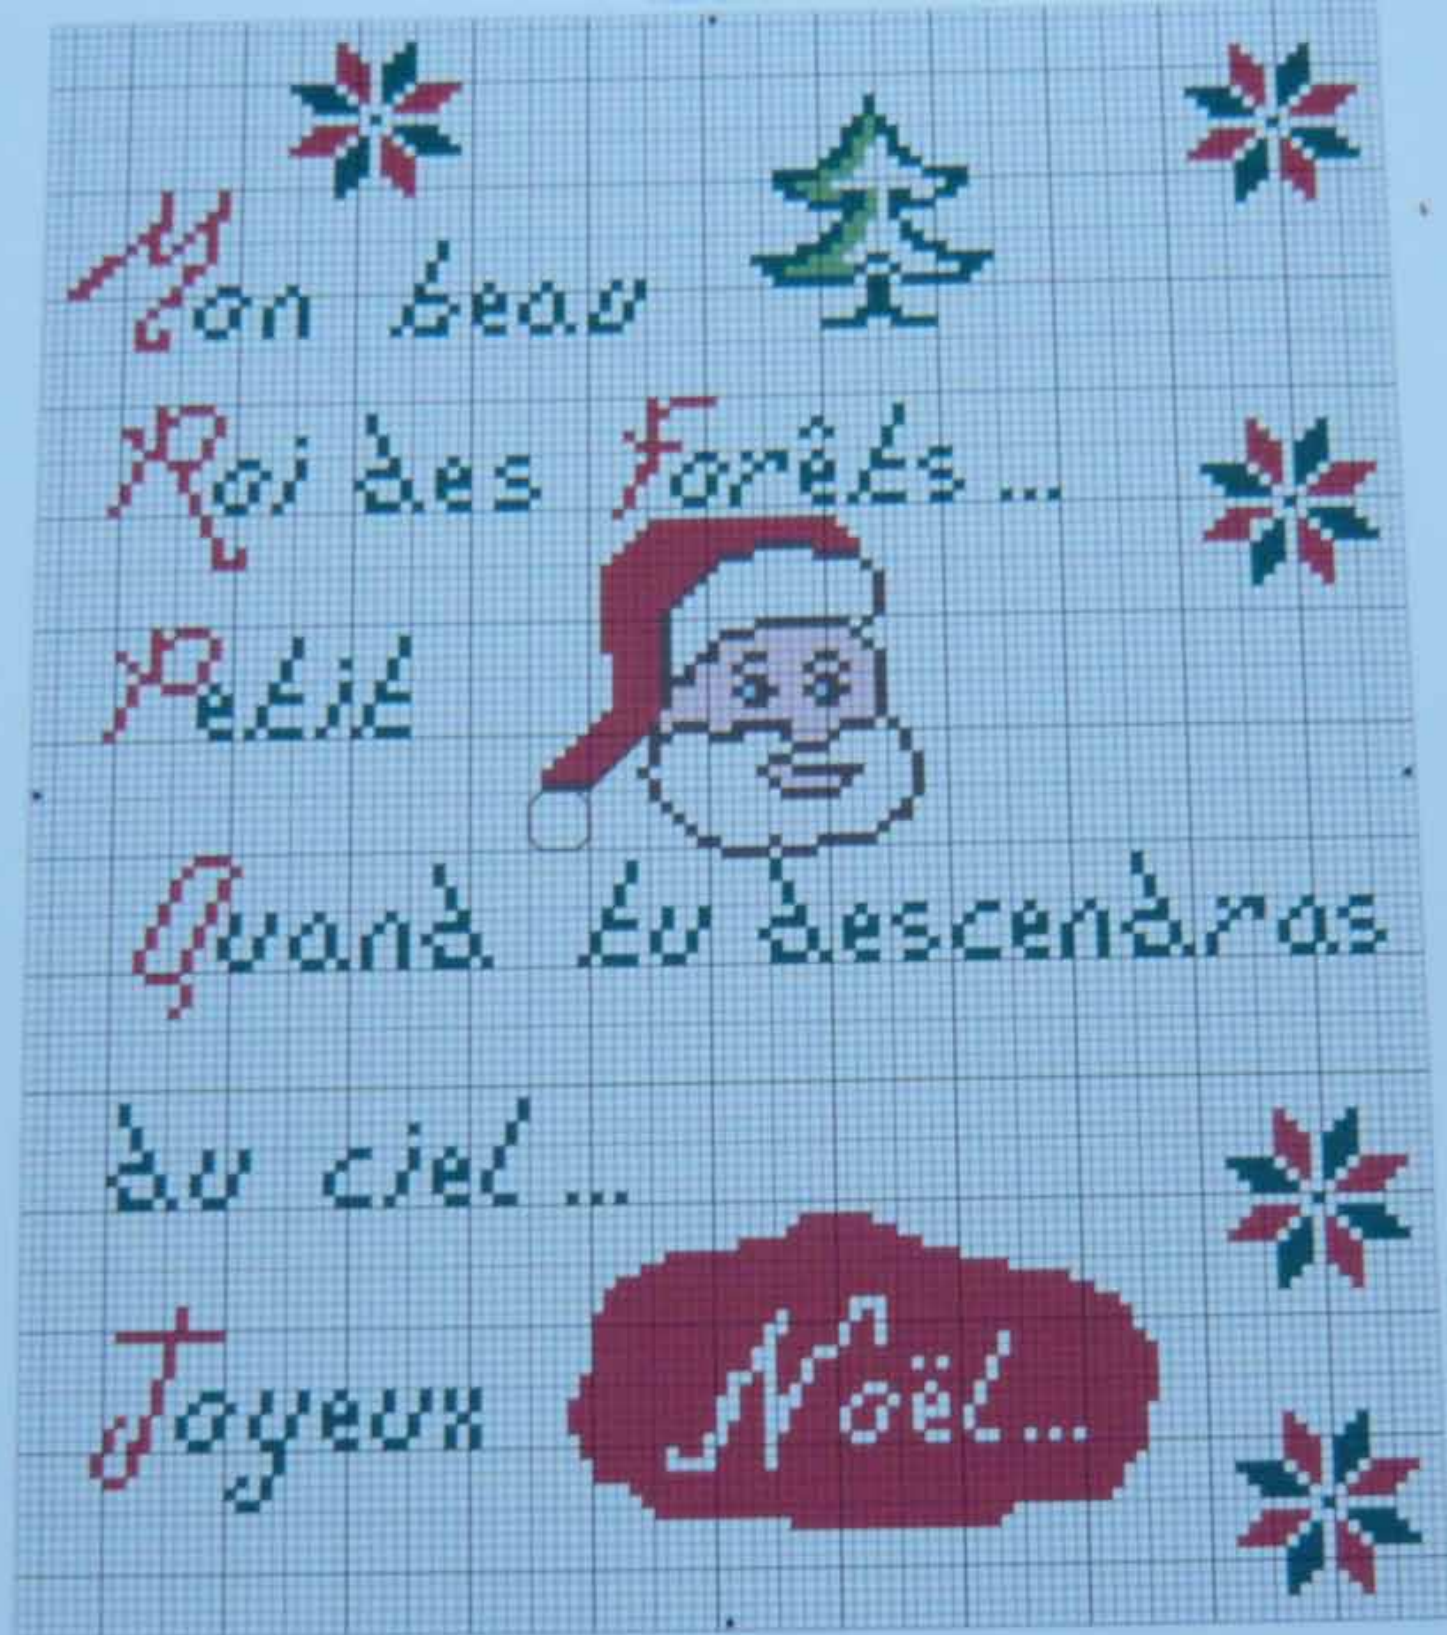 Mon beau
Roi des Forêts...
Petit
Quand tu descendras
du ciel...
Joyeux Noël...